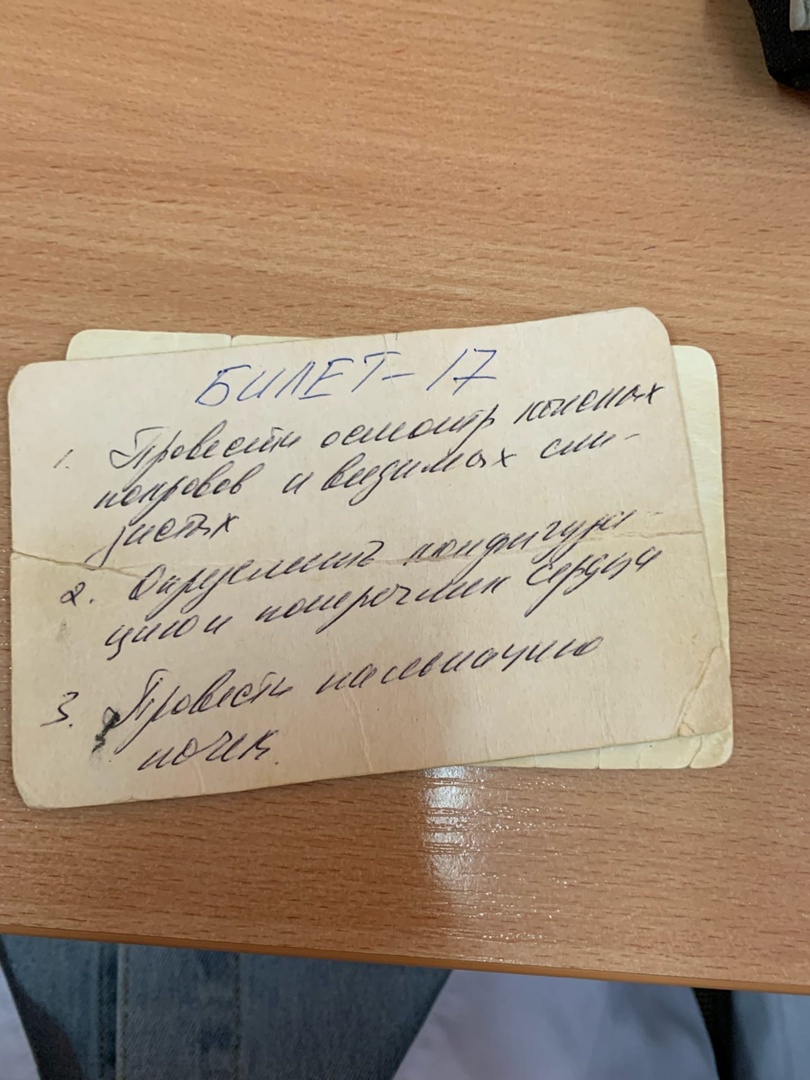 БИЛЕТ-17
1. Провести осмотр кожных
покровов и видимых сли-
зистых
2. Определить конфигура-
цию и поперечник сердца
3. Провести пальпацию
почек.